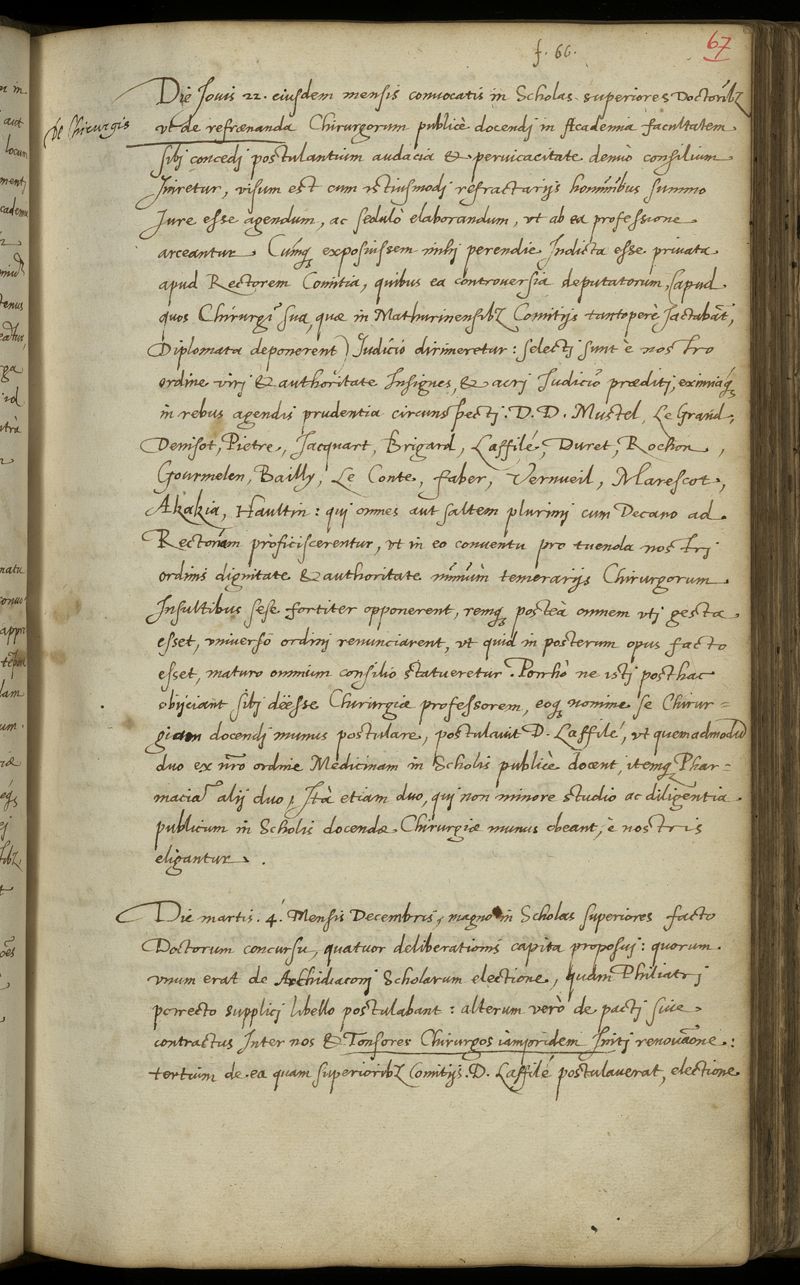 f. 66.
67
de Chirurgis
Die Jovis 22. eiusdem mensis convocatis in Scholas superiores Doctoribz
vt de refrænanda Chirurgorum publicè docendj in Academia facultatem
sibj concedj postulantium audacia & pervicacitate denuò consilium
Jniretur, visum est cum istiusmodj refractarijs hominibus summo
Jure esse agendum, ac sedulò elaborandum, vt ab ea professione
arceantur. Cúmq exposuissem mihj perendie Jndicta esse privata
apud Rectorem Comitia, quibus ea controversia deputatorum, (apud
quos Chirurgj sua, quæ in Mathurinensibz Comitijs tantoperè Jactabāt,
Diplomata deponerent) Judicio dirimeretur: selectj sunt è nostro
ordine virj & authoritate Jnsignes, & acrj Judicio præditj, eximiaq
in rebus agendis prudentia circunspectj. D. D. Mustel, Le Grand,
Denisot, Pietre, Jacquart, Brigard, Laffilé, Duret, Rochon,
Gourmelen, Bailly, Le Conte, Faber, Vernueil, Marescot,
Akakia, Haultin: qui omnes aut saltem plurimj cum Decano ad
Rectorem proficiscerentur, vt in eo conventu pro tuenda nostrj
ordinis dignitate & authoritate nimiùm temerarijs Chirurgorum
Jnsultibus sese fortiter opponerent, remq posteà omnem vtj gesta
esset, vniverso ordinj renunciarent, vt quid in posterum opus facto
esset, maturo omnium consilio statueretur. Porrhò ne istj posthac
obijciant sibj deësse Chirurgiæ professorem, eoq nomine se Chirur=
giam docendj munus postulare, postulavit D. Laffilé, vt quemadmodū
duo ex nr̄o ordine Medicinam in Scholis publicè docent, itemq Phar=
maciā alij duo, Jtà etiam duo, qui non minore studio ac diligentia
publicum in Scholis docendæ Chirurgiæ munus obeant, è nostris
eligantur.
Die martis. 4. Mensis Decembris, magno in Scholas superiores facto
Doctorum concursu, quatuor deliberationis capita proposuj: quorum
vnum erat de Archidiaconj Scholarum electione, quam Philiatrj
porrecto supplicj libello postulabant: alterum verò de pactj sive
contractus Jnter nos & Tonsores Chirurgos iampridem Jnitj renovatione:
tertium de ea quam superioribz Comitijs D. Laffilé postulaverat, electione